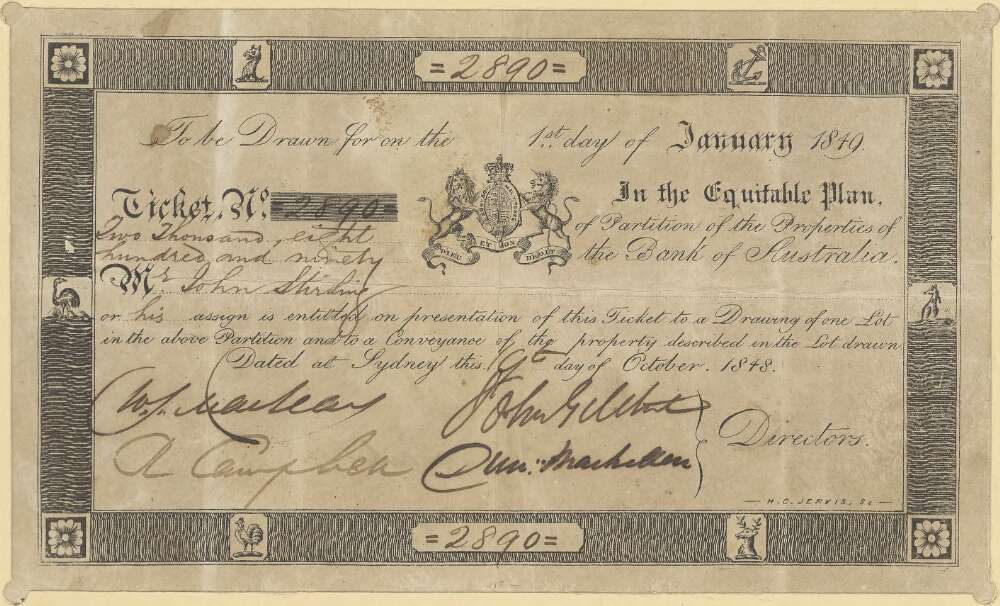 =2890=
To be Drawn for on the 1st. day of January 1849.
Ticket. No. 2890
Two Thousand, eight
hundred and ninety
In the Equitable Plan.
of Partition of the Properties of
the Bank of Australia.
DIEU ET MON DROIT
Mr. John Stirling
or his assign is entitled on presentation of this Ticket to a Drawing of one Lot
in the above Partition and to a Conveyance of the property described in the Lot drawn
Dated at Sydney this 9th day of October. 1848.
John Gilchrist
R Campbell
Directors.
H. C. JERVIS. Sc
=2890=